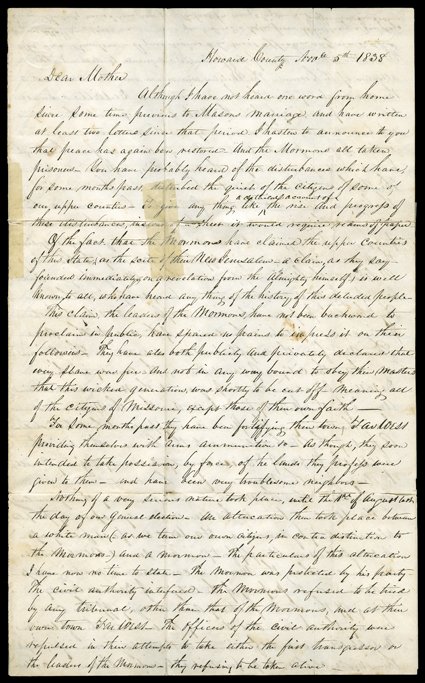 Howard County Novr 5th 1838
Dear Mother
Although I have not heard one word from home
since some time previous to Masons marriage and have written
at least two letters since that period I hasten to announce to you
that peace has again been restored – And the Mormons all taken
prisoners – You have probably heard of the disturbances which have,
for some months past disturbed the quiet of the citizens of some of
our upper counties – To give any thing like a detailed account of the rise and progress of
these disturbances, would require reams of paper
Of the fact that the Mormons have claimed the upper Counties
of this State, as the seat of their New Jerusalem – a claim, as they say –
founded immediately on a revelation from the Almighty himself; is well
known to all, who have heard any thing of the history of this deluded people –
This claim, the leaders of the Mormons, have not been backward to
proclaim in public, have spared no pains to impress it on their
followers – They have also both publicly and privately declared that
every slave was free and not in any way bound to obey their Masters
that this wicked generation, was shortly to be cut off meaning all
of the citizens of Missouri, except those of their own faith –
For some months past they have been fortifying their town, Far West
providing themselves with arms ammunition &c – As though, they soon
intended to take possession, by force, of the lands they profess were
given to them – and have been very troublesome neighbors –
Nothing of a very serious nature took place, until the of August last
the day of our general election – An altercation then took place between
a white man (as we term our own citizens, in contra distinction to
the Mormons) and a Mormon – the particulars of this altercation
I have now no time to state – the Mormon was protected by his party
The civil authority interfered – the Mormons refused to be tried
by any tribunal, other than that of the Mormons, and at their
own town Far West – The officers of the civil authority were
repulsed in their attempts to take either the first transgressor or
the leaders of the Mormons – they refusing to be taken alive